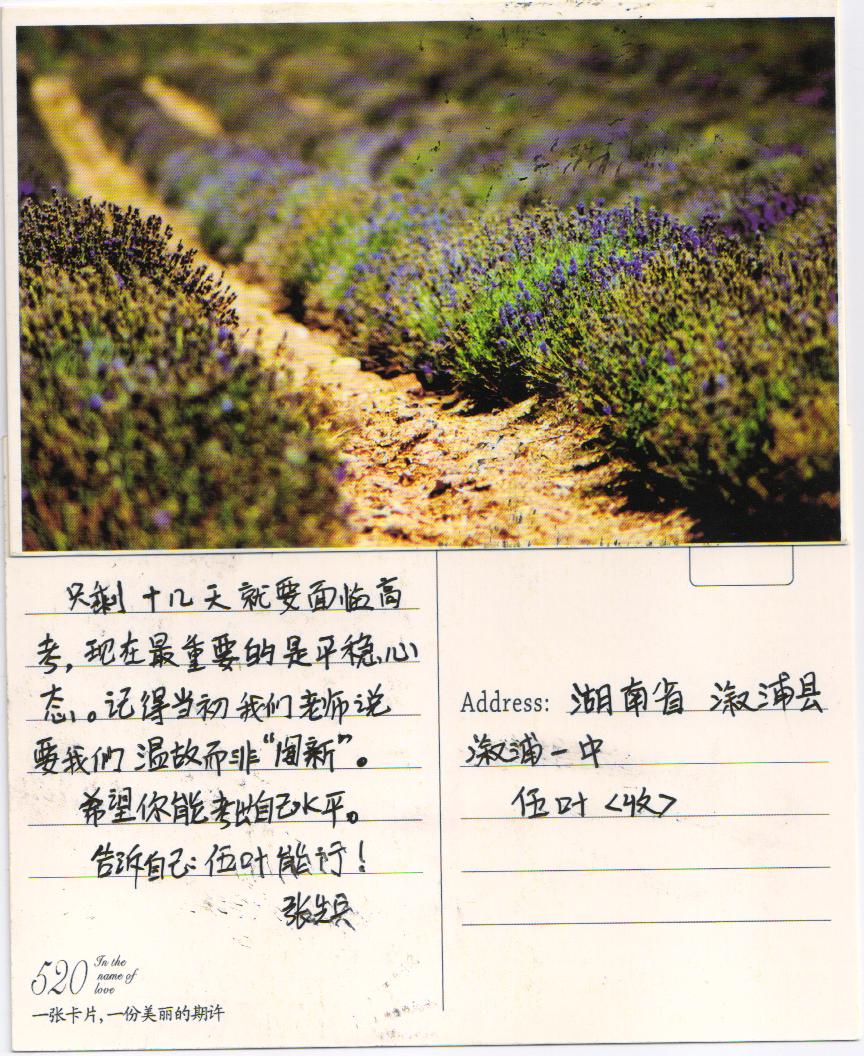 只剩十几天就要面临高
考,现在最重要的是平稳心
态。记得当初我们老师说
要我们温故而非“闻新”。
希望你能考出自己水平。
告诉自己:伍叶能行!
张先兵
520 In the
name of
love
一张卡片,一份美丽的期许
Address: 湖南省 溆浦县
溆浦一中
伍叶<收>